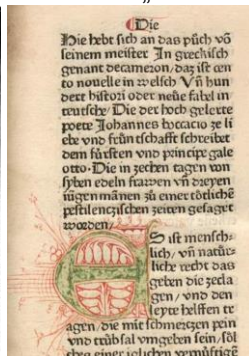 Die
Hie hebt sich an das půch vō
seinem meister In greckisch
genant decameron/daz ist cen
to nouelle in welsch Vñ hun
dert histori oder neüe fabel in
teutsche/Die der hoch gelerte
poete Iohannes boccacio ze li
ebe vnd früntschafft schreibet
dem fürsten vnd principe gale
otto. Die in zechen tagen von
syben edeln frawen vñ dreyen
iügen mānen zů einer tötliche
pestilenczischen zeiten gesaget
worden/
ES ist mensch-
lich/vñ natür-
liche recht das
geben die zecla
gen/vnd den
leyte helffen tr
agen/die mit schmerczen pein
vnd trübsal vmgeben sein/söl
ches einer iglichen vernüftigē